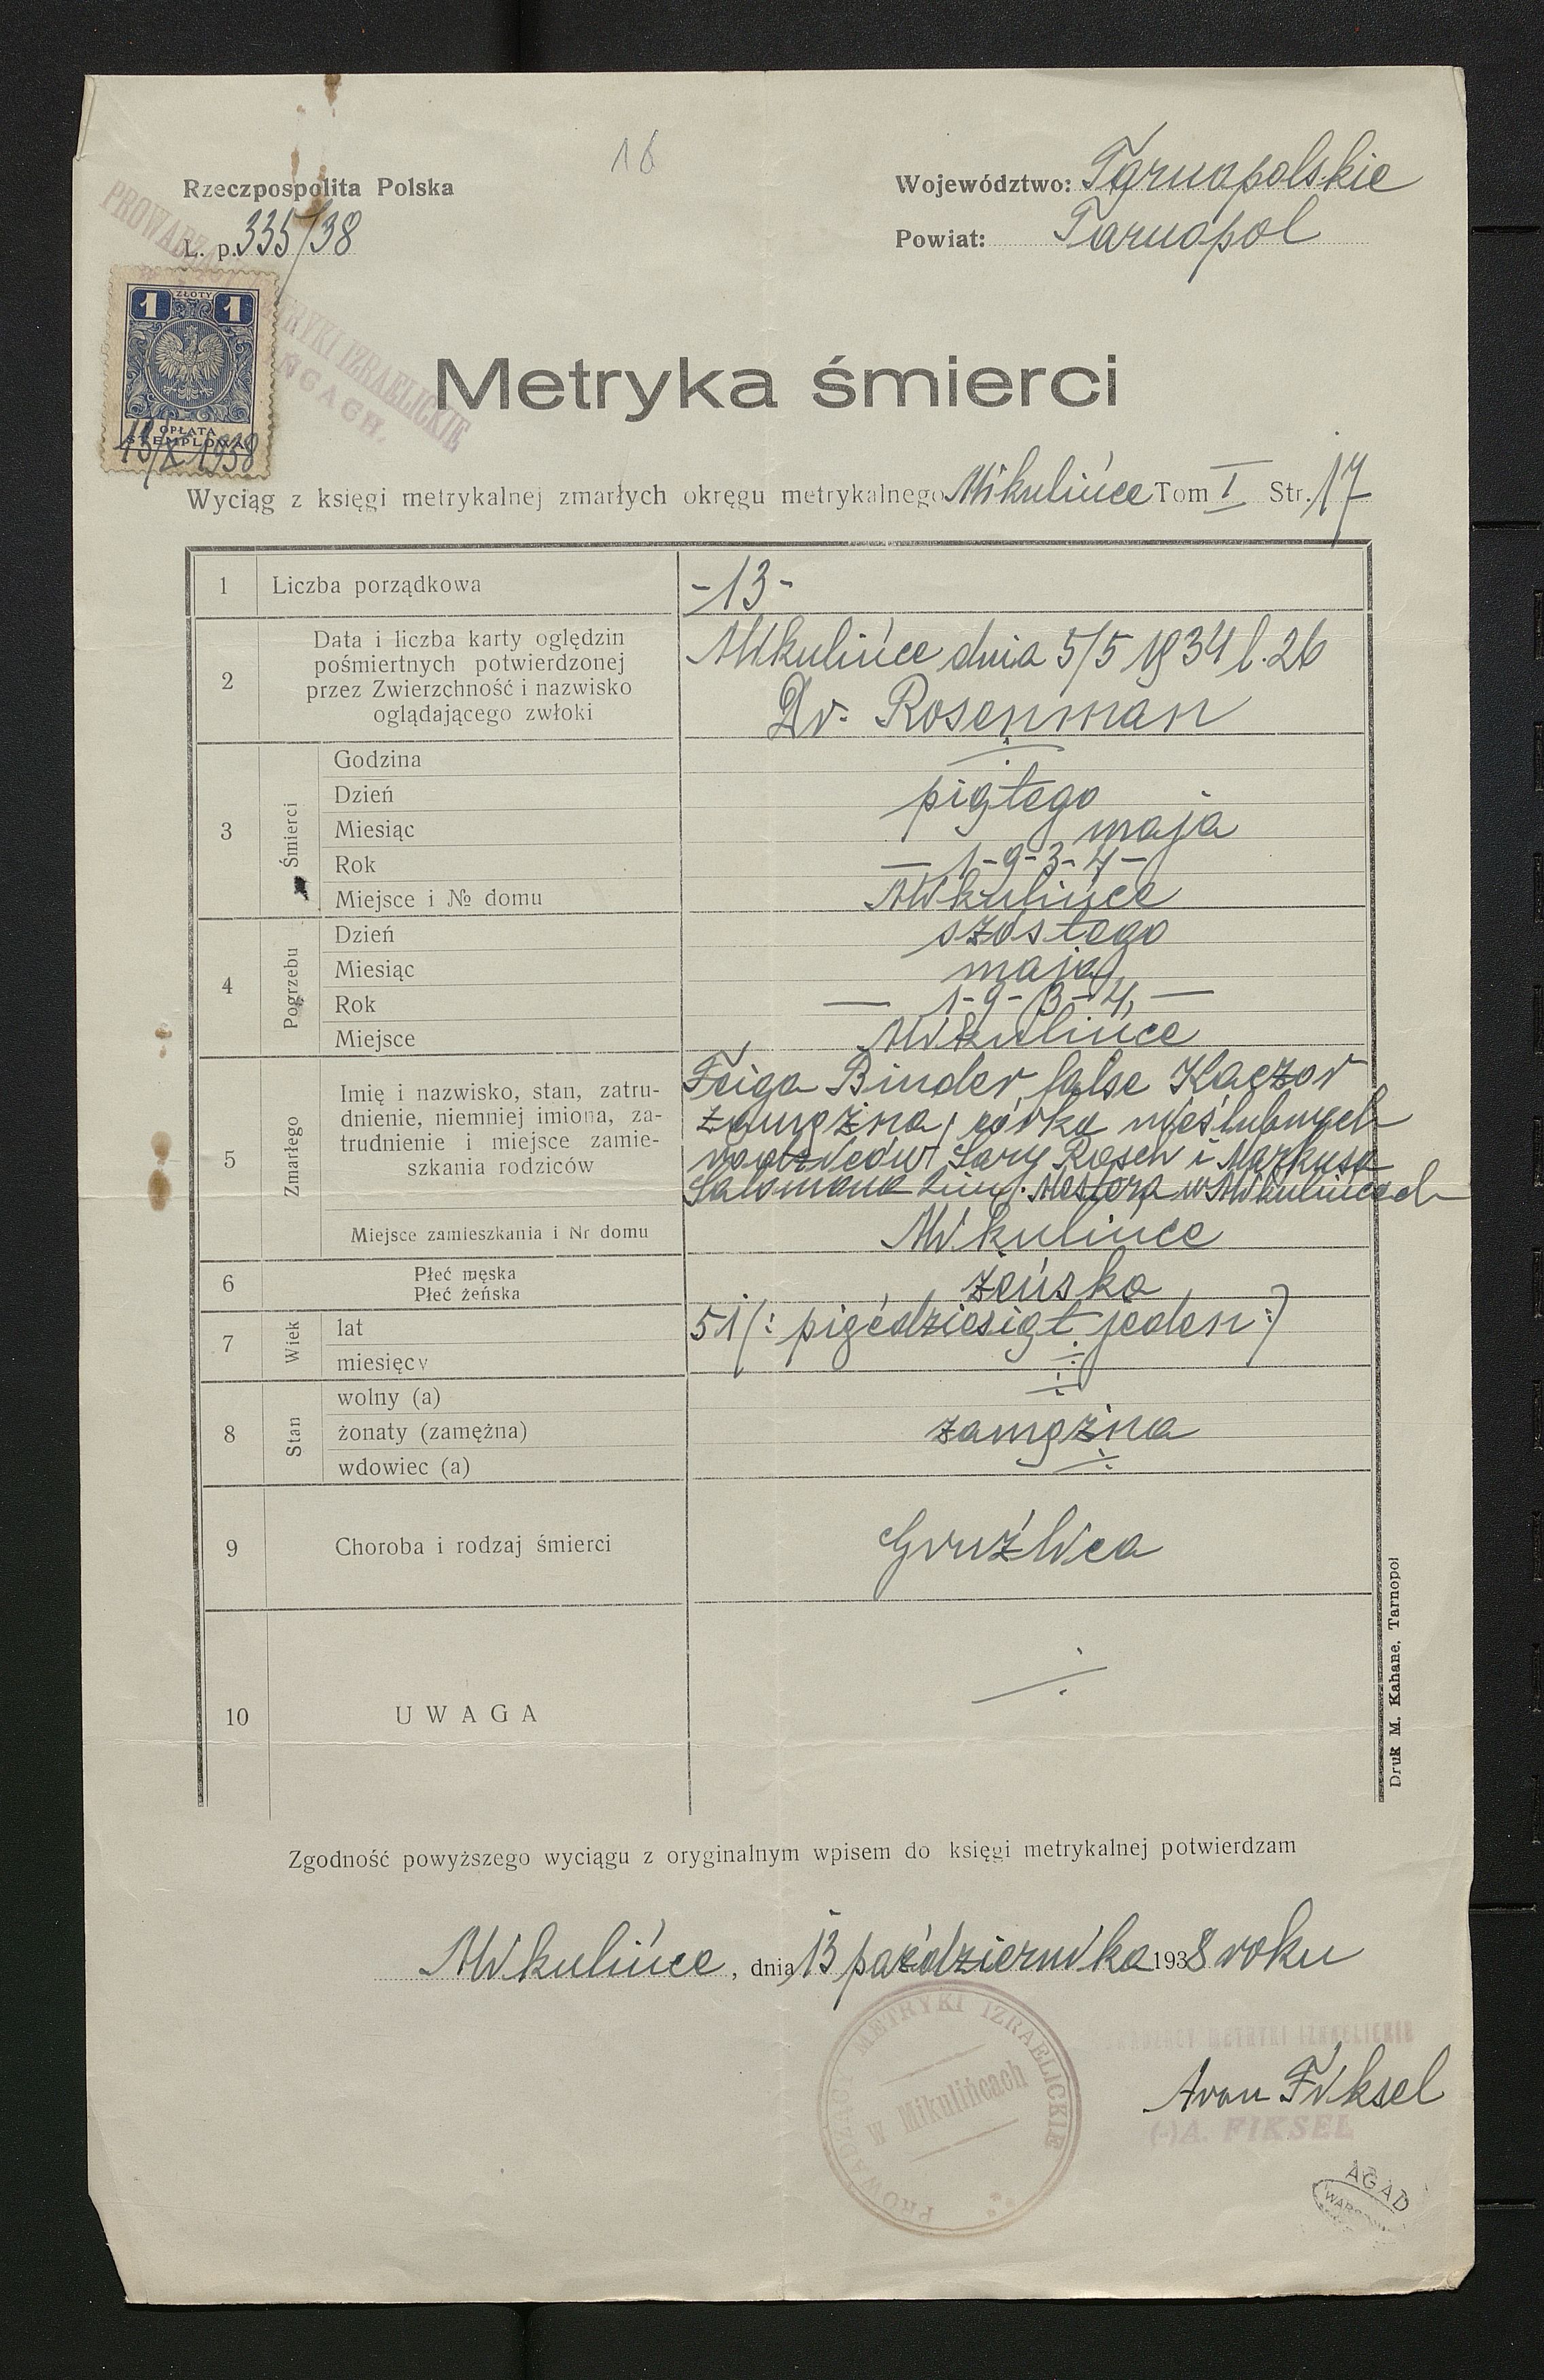 16
Rzeczpospolita Polska
L. p. 335/38
Województwo: Tarnopolskie
Powiat: Tarnopol
PROWADZĄCY METRYKI IZRAELICKIE
1 ZŁOTY 1
OPŁATA
STEMPLOWA
13/X 1938
Metryka śmierci
Wyciąg z księgi metrykalnej zmarłych okręgu metrykalnego Mikulińce Tom I Str. 17
1 Liczba porządkowa -13-
2 Data i liczba karty oględzin
pośmiertnych potwierdzonej
przez Zwierzchność i nazwisko
oglądającego zwłoki
Mikulińce dnia 5/5 1934 l. 26
Dr. Rosenman
3 Śmierci
Godzina
Dzień piątego
Miesiąc maja
Rok — 1-9-3-4 —
Miejsce i № domu Mikulińce
4 Pogrzebu
Dzień szóstego
Miesiąc maja
Rok — 1-9-3-4, —
Miejsce Mikulińce
5 Zmarłego
Imię i nazwisko, stan, zatru-
dnienie, niemniej imiona, za-
trudnienie i miejsce zamie-
szkania rodziców
Feiga Binder, false Kaczor
zamężna, córka nieślubnych
rodziców Sary Rosen i Markusa
Salomona Mestera w Mikulińcach
Miejsce zamieszkania i Nr domu Mikulince
6 Płeć męska
Płeć żeńska
żeńska
7 Wiek
lat 51 (: pięćdziesiąt jeden :)
miesięcy
8 Stan
wolny (a)
żonaty (zamężna) zamężna
wdowiec (a)
9 Choroba i rodzaj śmierci Gruźlica
10 UWAGA
Druk M. Kahane, Tarnopol
Zgodność powyższego wyciągu z oryginalnym wpisem do księgi metrykalnej potwierdzam
Mikulińce, dnia 13 października 1938 roku
PROWADZĄCY METRYKI IZRAELICKIE
w Mikulińcach
PROWADZĄCY METRYKI IZRAELICKIE
Aron Fiksel
(-) A. FIKSEL
AGAD